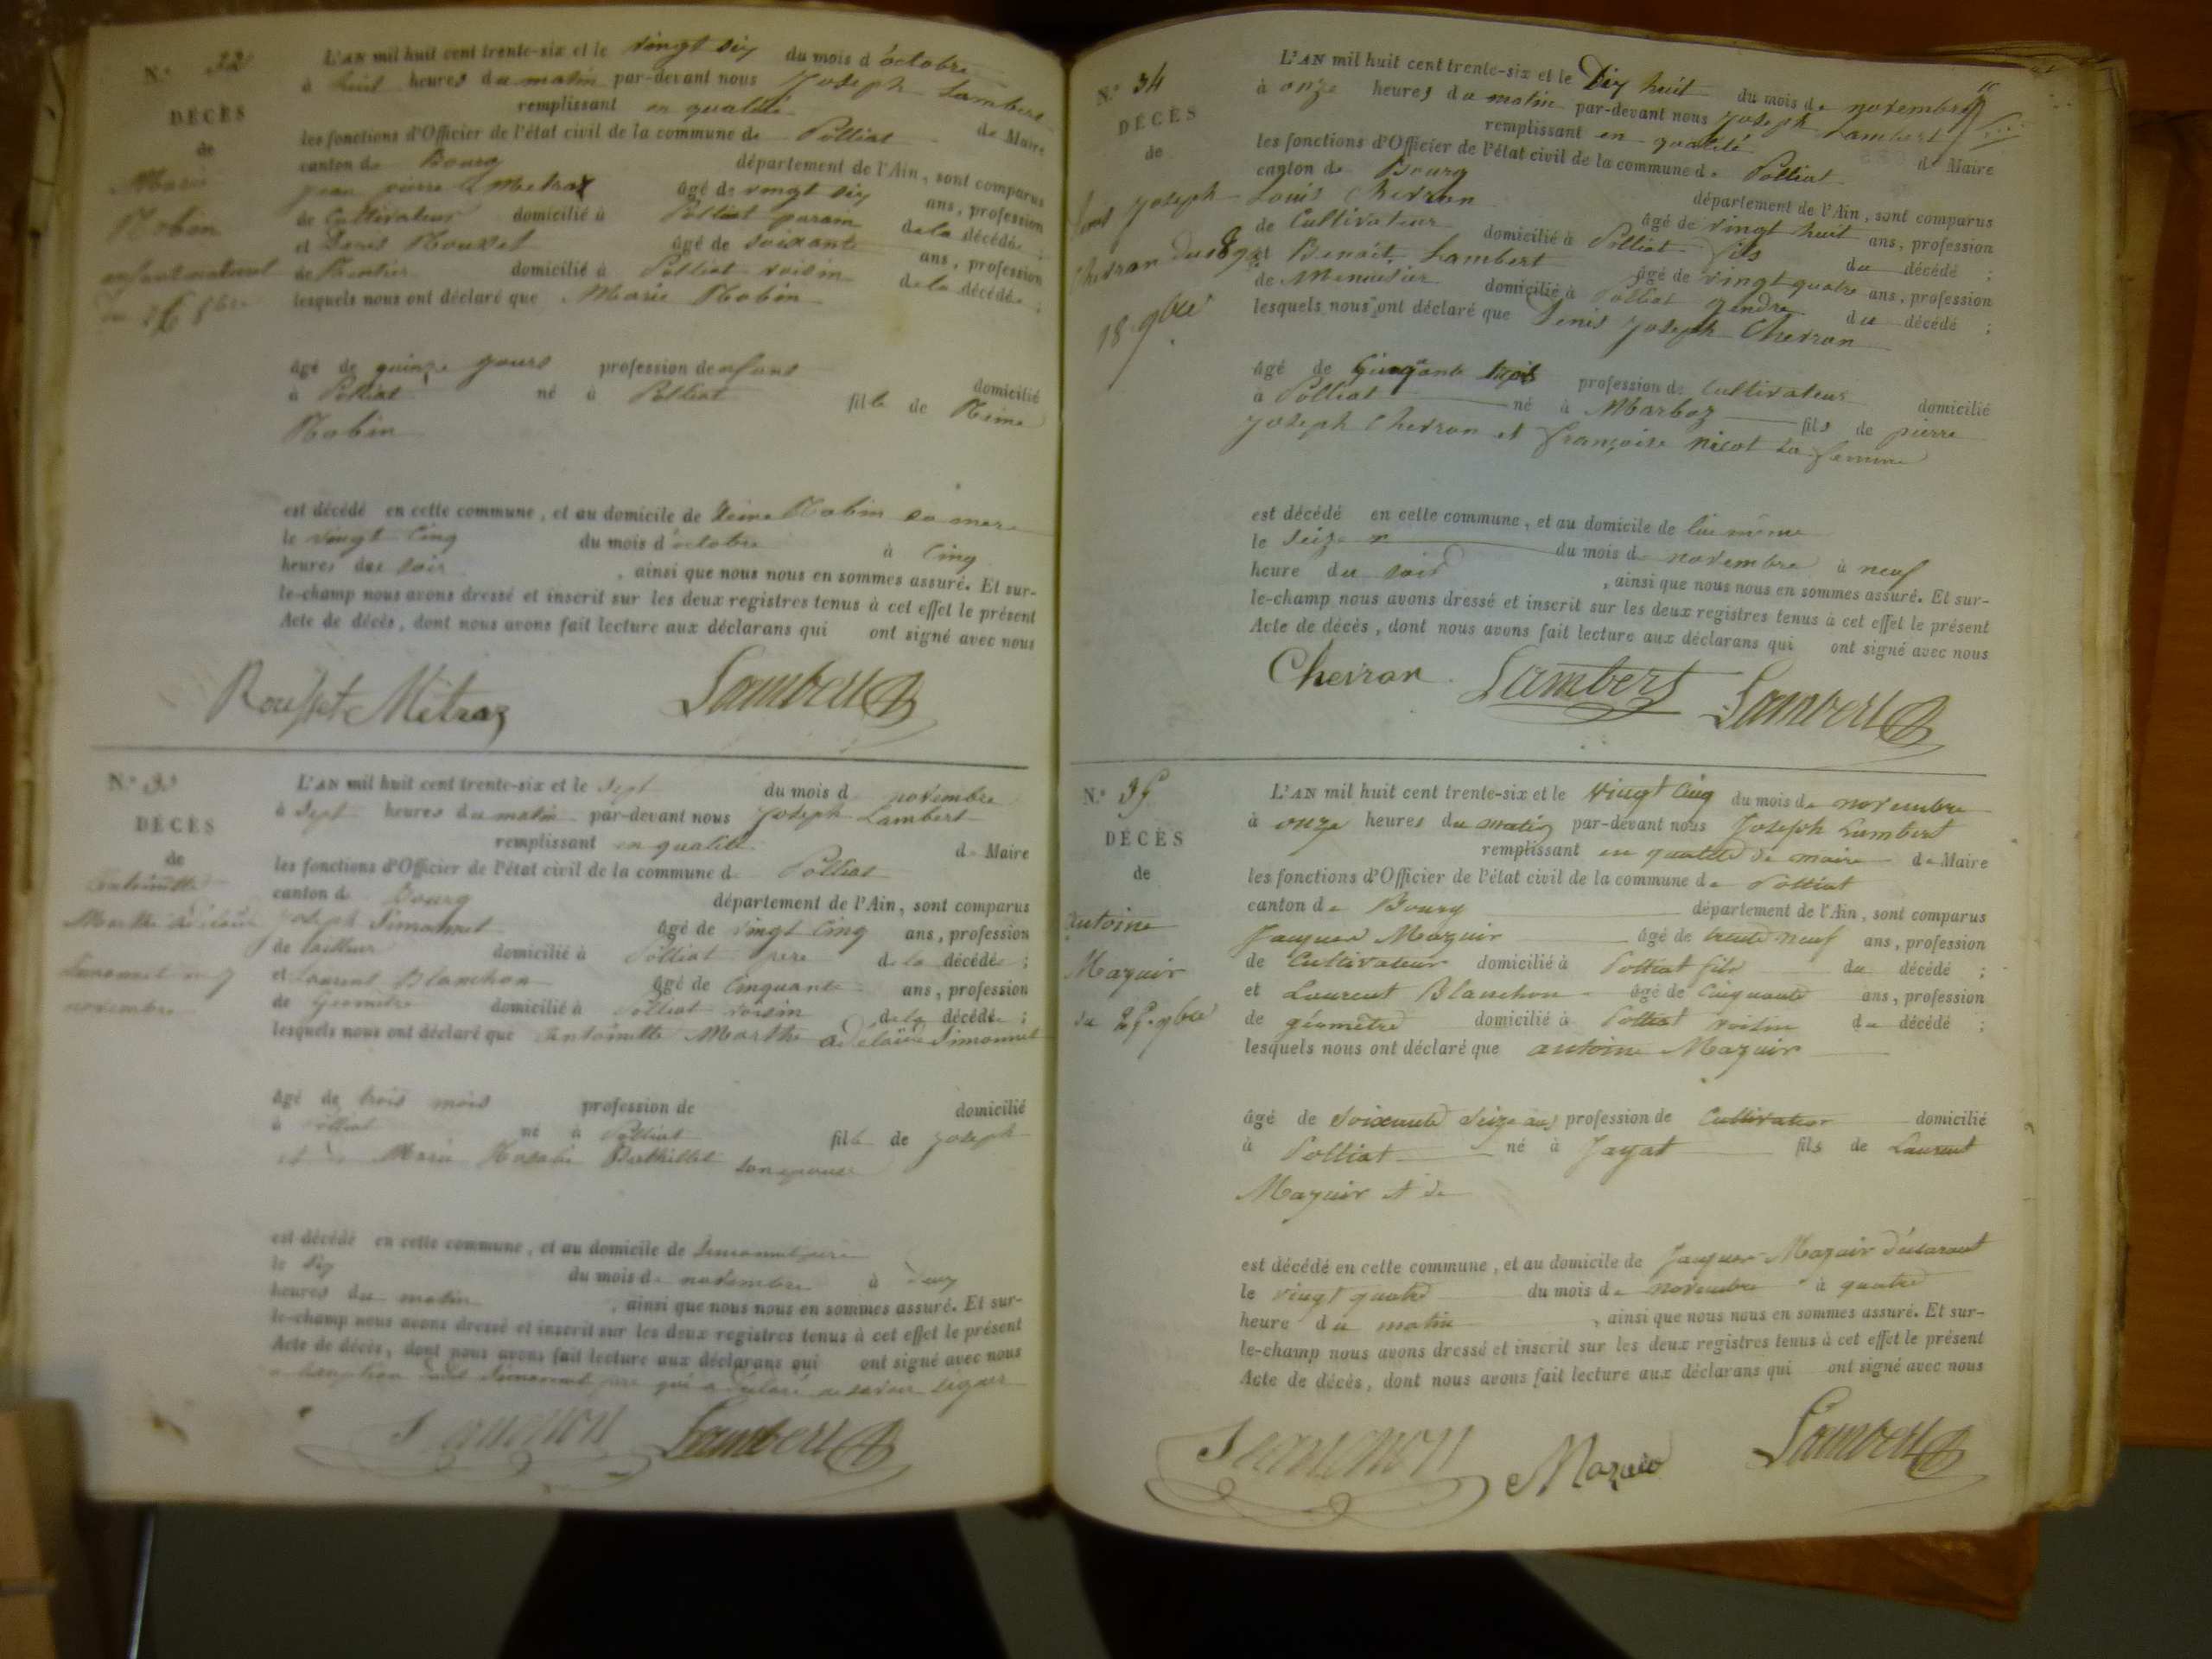 N.° 32
DÉCÈS
de
Marie
Robin
enfant naturel
du 26 8bre
L'AN mil huit cent trente-six et le vingt six du mois d'octobre
à huit heures du matin par-devant nous Joseph Lambert
remplissant en qualité de Maire
les fonctions d'Officier de l'état civil de la commune de Polliat
canton de Bourg département de l'Ain, sont comparus
jean pierre Metraz âgé de vingt six ans, profession
de Cultivateur domicilié à Polliat parain de la décédée ;
et Denis Rousset âgé de soixante ans, profession
de Rentier domicilié à Polliat voisin de la décédée ;
lesquels nous ont déclaré que Marie Robin
âgé de quinze jours profession de enfant domicilié
à Polliat né à Polliat fille de Reine
Robin
est décédé en cette commune, et au domicile de Reine Robin sa mere
le vingt Cinq du mois d'octobre à Cinq
heures du soir, ainsi que nous nous en sommes assuré. Et sur-
le-champ nous avons dressé et inscrit sur les deux registres tenus à cet effet le présent
Acte de décès, dont nous avons fait lecture aux déclarans qui ont signé avec nous
Rousset Métraz Lambert
N.° 33
DÉCÈS
de
Antoinette
Marthe adelaïde
Simonnet
novembre
L'AN mil huit cent trente-six et le sept du mois d novembre
à sept heures du matin par-devant nous Joseph Lambert
remplissant en qualité de Maire
les fonctions d'Officier de l'état civil de la commune d Polliat
canton de Bourg département de l'Ain, sont comparus
joseph Simonnet âgé de vingt Cinq ans, profession
de tailleur domicilié à Polliat pere de la décédée ;
et Laurent Blanchon âgé de Cinquante ans, profession
de Géomètre domicilié à Polliat voisin de la décédée ;
lesquels nous ont déclaré que antoinette Marthe adelaïde Simonnet
âgé de trois mois profession de domicilié
à Polliat né à Polliat fille de joseph
et de Marie Rosalie Berthillet son epouse
est décédé en cette commune, et au domicile de Simonnet pere
le Six du mois de novembre à deux
heures du matin, ainsi que nous nous en sommes assuré. Et sur-
le-champ nous avons dressé et inscrit sur les deux registres tenus à cet effet le présent
Acte de décès, dont nous avons fait lecture aux déclarans qui ont signé avec nous
a l'exception dudit Simonnet pere qui a déclaré ne savoir signer
Lambert
N.° 34
DÉCÈS
de
Denis joseph
Chevron du
18 9bre
L'AN mil huit cent trente-six et le Dix huit du mois de novembre
à onze heures du matin par-devant nous joseph Lambert
remplissant en qualité de Maire
les fonctions d'Officier de l'état civil de la commune de Polliat
canton de Bourg département de l'Ain, sont comparus
Louis Chevron âgé de vingt huit ans, profession
de Cultivateur domicilié à Polliat fils du décédé ;
et Benoit Lambert âgé de vingt quatre ans, profession
de Menuisier domicilié à Polliat gendre du décédé ;
lesquels nous ont déclaré que Denis joseph Chevron
âgé de Cinquante trois profession de Cultivateur domicilié
à Polliat né à Marboz fils de pierre
joseph Chevron et françoise nicot sa femme
est décédé en cette commune, et au domicile de lui même
le seize du mois de novembre à neuf
heure du soir, ainsi que nous nous en sommes assuré. Et sur-
le-champ nous avons dressé et inscrit sur les deux registres tenus à cet effet le présent
Acte de décès, dont nous avons fait lecture aux déclarans qui ont signé avec nous
Chevron Lambert Lambert
N.° 35
DÉCÈS
de
antoine
Mazuir
du 25 9bre
L'AN mil huit cent trente-six et le vingt Cinq du mois de novembre
à onze heures du matin par-devant nous Joseph Lambert
remplissant en qualité de maire de Maire
les fonctions d'Officier de l'état civil de la commune de Polliat
canton de Bourg département de l'Ain, sont comparus
Jacques Mazuir âgé de trente neuf ans, profession
de Cultivateur domicilié à Polliat fils du décédé ;
et Laurent Blanchon âgé de Cinquante ans, profession
de géomètre domicilié à Polliat voisin du décédé ;
lesquels nous ont déclaré que antoine Mazuir
âgé de soixante seize ans profession de Cultivateur domicilié
à Polliat né à Jayat fils de Laurent
Mazuir et de
est décédé en cette commune, et au domicile de Jacques Mazuir déclarant
le vingt quatre du mois de novembre à quatre
heure du matin, ainsi que nous nous en sommes assuré. Et sur-
le-champ nous avons dressé et inscrit sur les deux registres tenus à cet effet le présent
Acte de décès, dont nous avons fait lecture aux déclarans qui ont signé avec nous
Mazuir Lambert